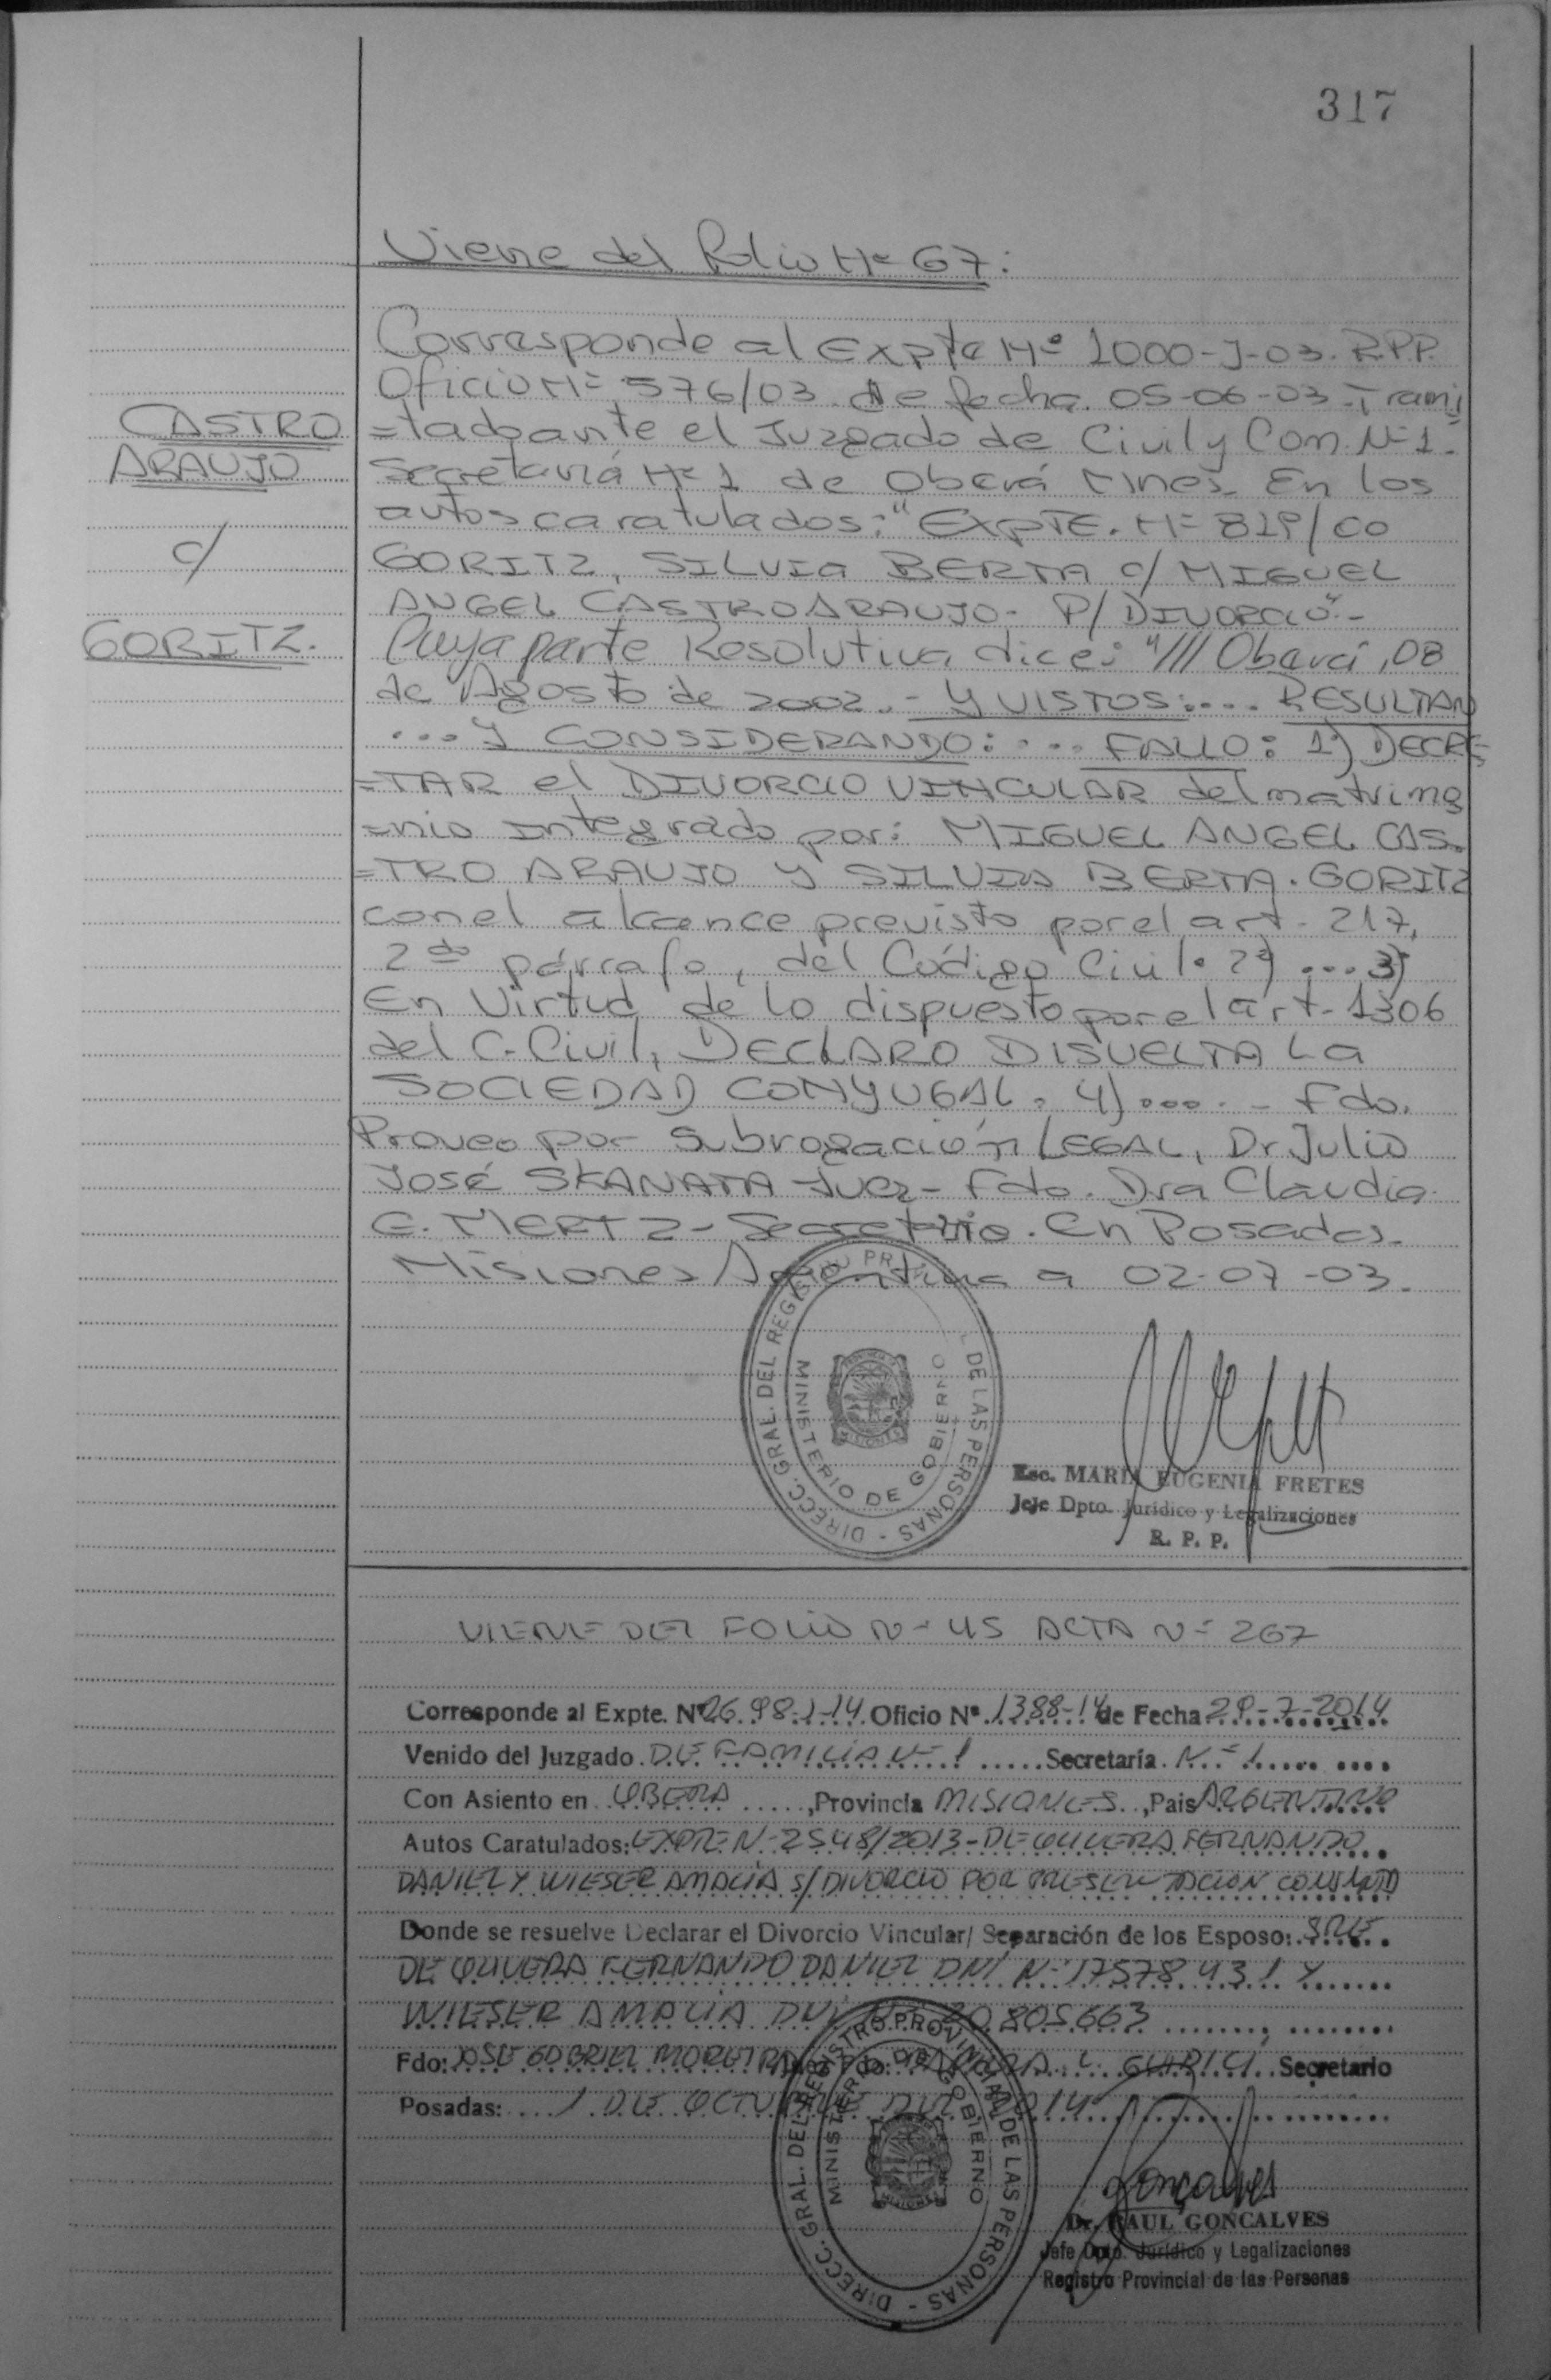 317
Viene del folio Nº 67:
Corresponde al Expte Nº 1000-J-03. R.P.P.
Oficio Nº 576/03 de fecha 05-06-03. Trami
=tado ante el Juzgado de Civil y Com. Nº 1.
Secretaría Nº 1 de Oberá Mnes. En los
autos caratulados: "EXPTE. Nº 819/00
GORITZ, SILVIA BERTA c/ MIGUEL
ANGEL CASTRO ARAUJO- P/ DIVORCIO".-
CASTRO
ARAUJO
c/
GORITZ.
Cuya parte Resolutiva dice: "/// Oberá, 08
de Agosto de 2002.- Y VISTOS:... RESULTAN
... Y CONSIDERANDO: ... FALLO: 1º) DECRE-
=TAR el DIVORCIO VINCULAR del matrimo
=nio integrado por: MIGUEL ANGEL CAS-
=TRO ARAUJO Y SILVIA BERTA. GORITZ
con el alcance previsto por el art. 217,
2do párrafo, del Código Civil. 2º) ... 3)
En Virtud de lo dispuesto por el art. 1306
del C. Civil, DECLARO DISUELTA La
SOCIEDAD CONYUGAL. 4) .... - Fdo.
Proveo por Subrogación LEGAL, Dr Julio
José SKANATA Juez- Fdo. Dra Claudia
G. MERTZ- Secretaria. En Posadas.
Misiones Argentina a 02-07-03.
DIRECC. GRAL. DEL REGISTRO PROV DE LAS PERSONAS -
MINISTERIO DE GOBIERNO
MISIONES
Esc. MARIA EUGENIA FRETES
Jefe Dpto. Jurídico y Legalizaciones
R. P. P.
VIENE DEL FOLIO Nº 45 ACTA Nº 267
Corresponde al Expte. Nº 2698-J-14 Oficio Nº 1388-14 de Fecha 29-7-2014
Venido del Juzgado DE FAMILIA Nº 1 Secretaría Nº 1
Con Asiento en OBERA, Provincia MISIONES, Pais ARGENTINA
Autos Caratulados: EXPTE Nº 2548/2013-DE OLIVERA FERNANDO
DANIEL Y WIESER AMALIA S/ DIVORCIO POR PRESENTACION CONJUNTA
Donde se resuelve Declarar el Divorcio Vincular/ Separación de los Esposo: SRE
DE OLIVERA FERNANDO DANIEL DNI Nº 17578431 Y
WIESER AMALIA DNI Nº 20.805.663
Fdo: JOSE GABRIEL MOREIRA Fdo: Secretario
Posadas: 1 DE OCTUBRE DEL 2014
DIRECC. GRAL. DEL REGISTRO PROVINCIAL DE LAS PERSONAS -
MINISTERIO DE GOBIERNO
MISIONES
Goncalves
Dr. RAUL GONCALVES
Jefe Dpto. Jurídico y Legalizaciones
Registro Provincial de las Personas